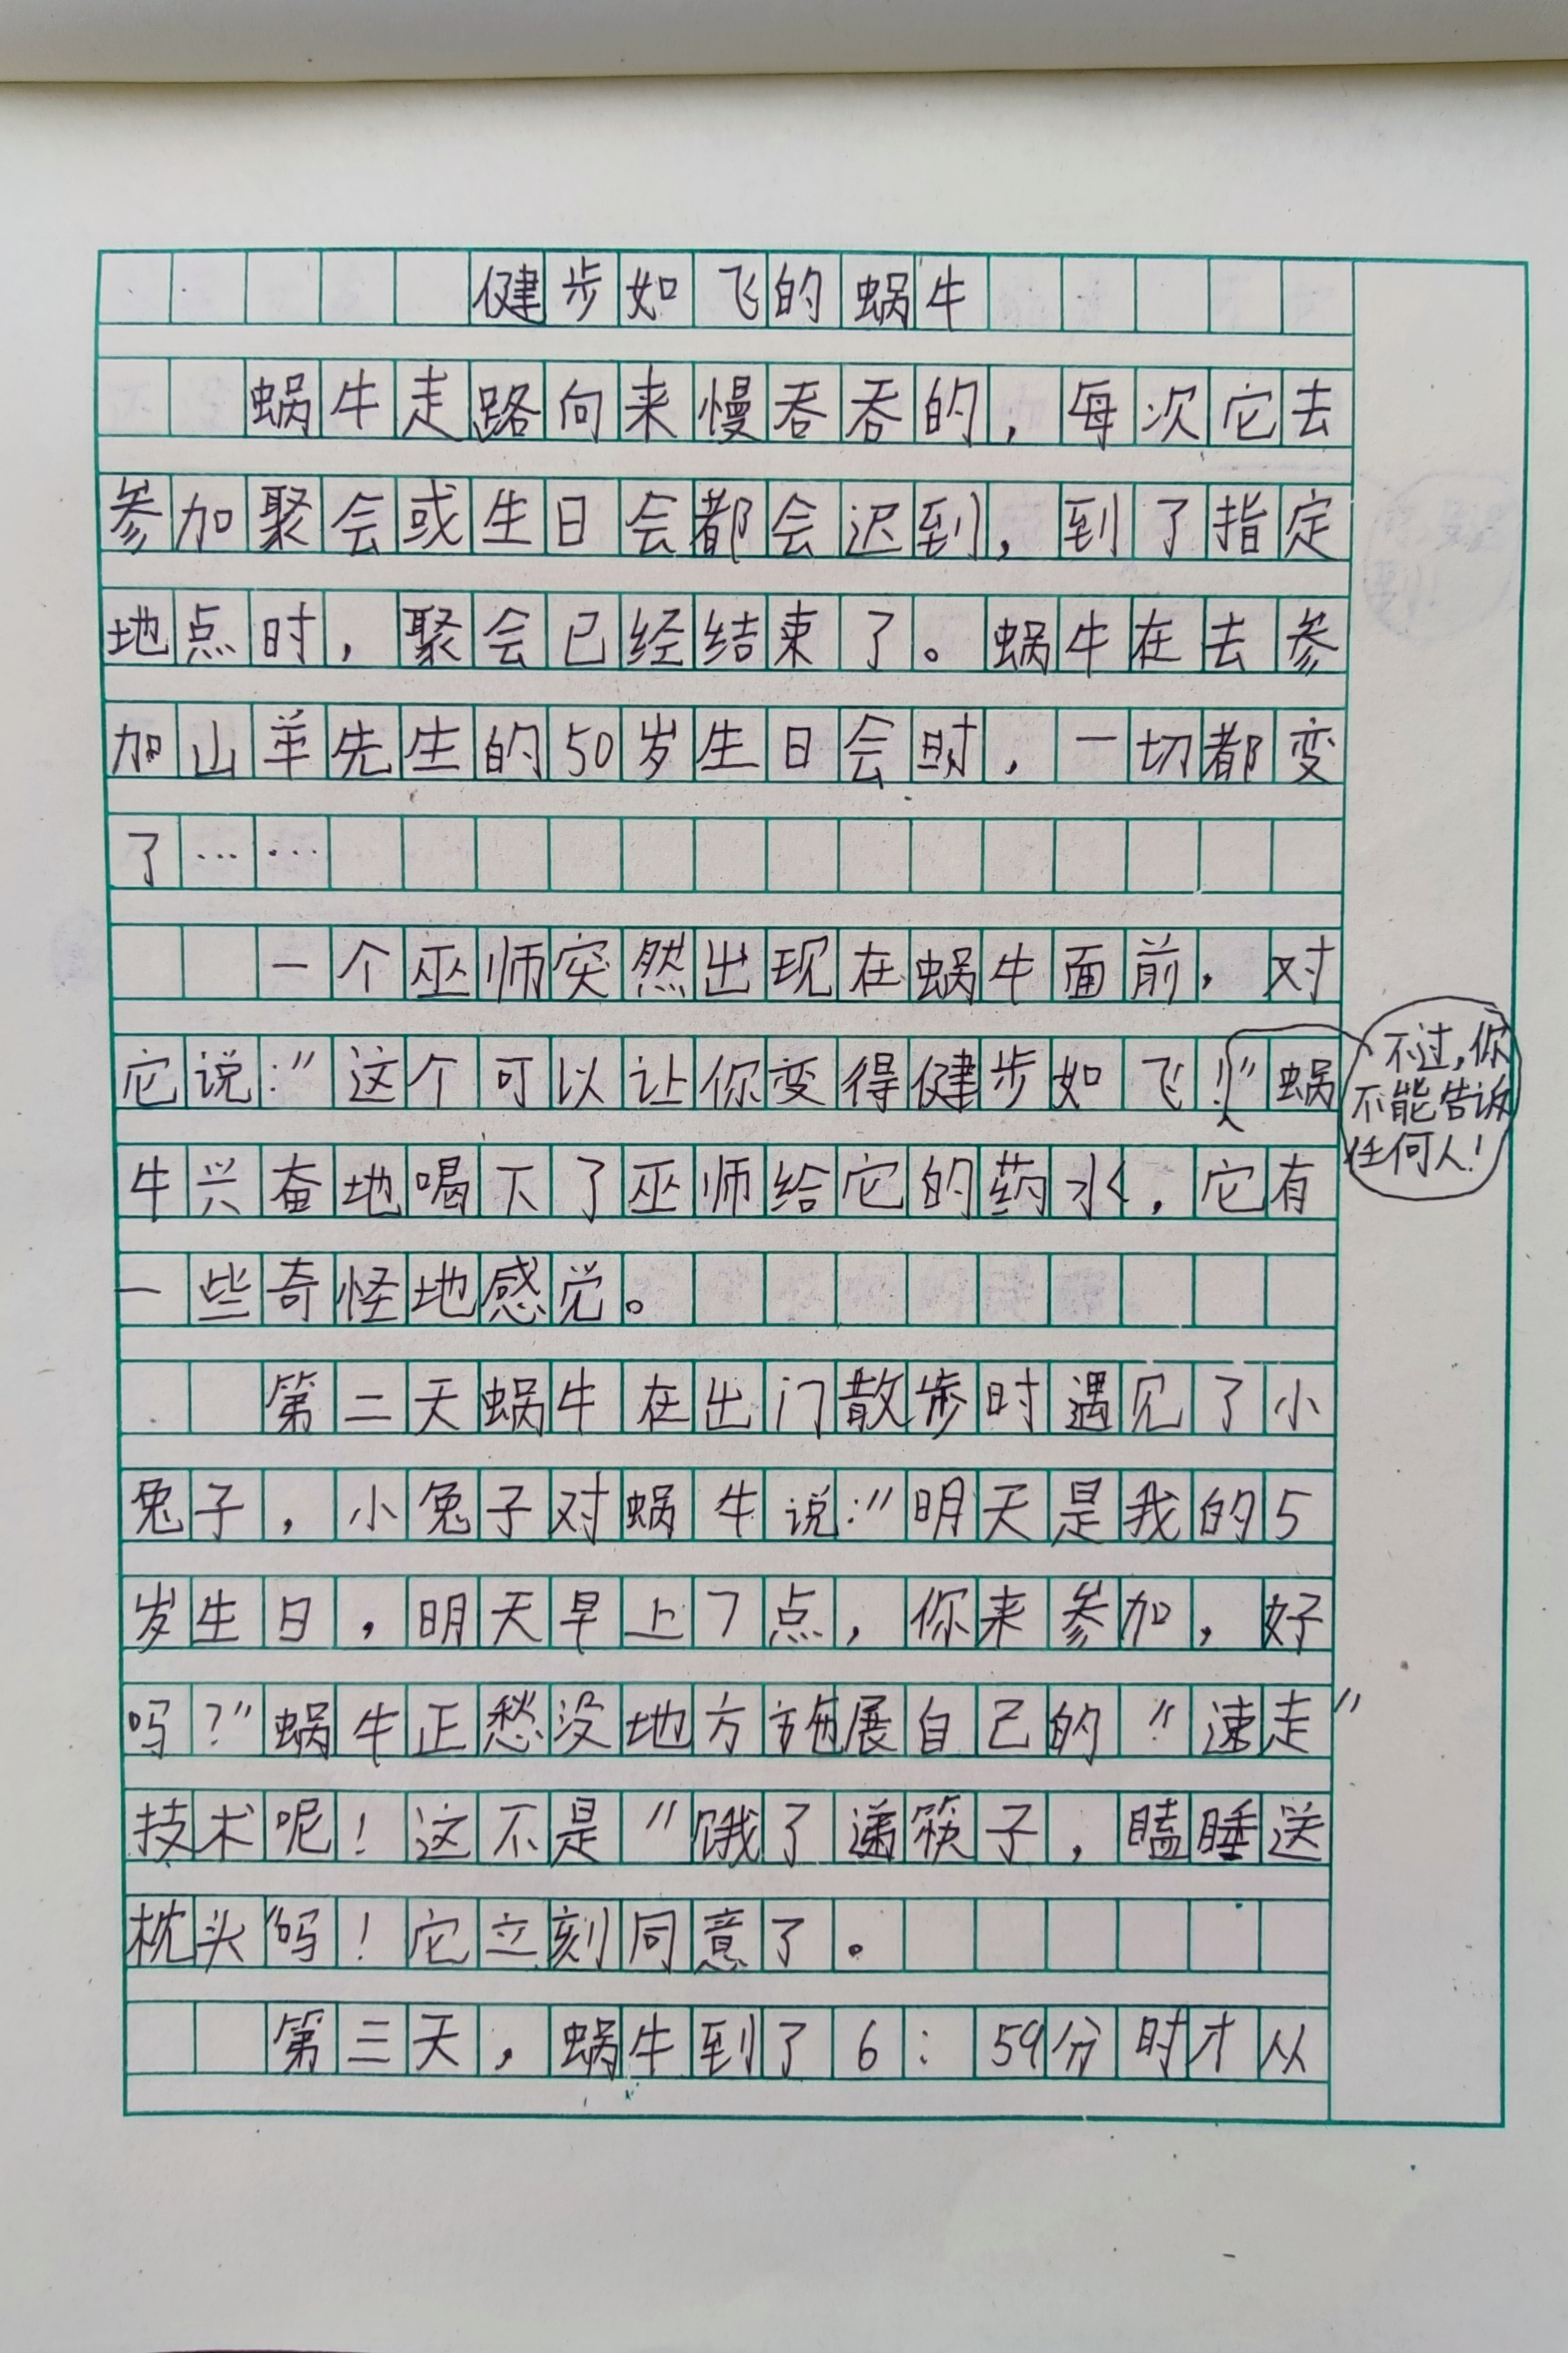 健步如飞的蜗牛
蜗牛走路向来慢吞吞的，每次它去
参加聚会或生日会都会迟到，到了指定
地点时，聚会已经结束了。蜗牛在去参
加山羊先生的50岁生日会时，一切都变
了……
一个巫师突然出现在蜗牛面前，对
它说:"这个可以让你变得健步如飞!"蜗
不过,你
不能告诉
任何人!
牛兴奋地喝下了巫师给它的药水，它有
一些奇怪地感觉。
第二天蜗牛在出门散步时遇见了小
兔子，小兔子对蜗牛说:"明天是我的5
岁生日，明天早上7点，你来参加，好
吗?"蜗牛正愁没地方施展自己的"速走"
技术呢！这不是"饿了递筷子，瞌睡送
枕头"吗！它立刻同意了。
第三天，蜗牛到了6:59分时才从